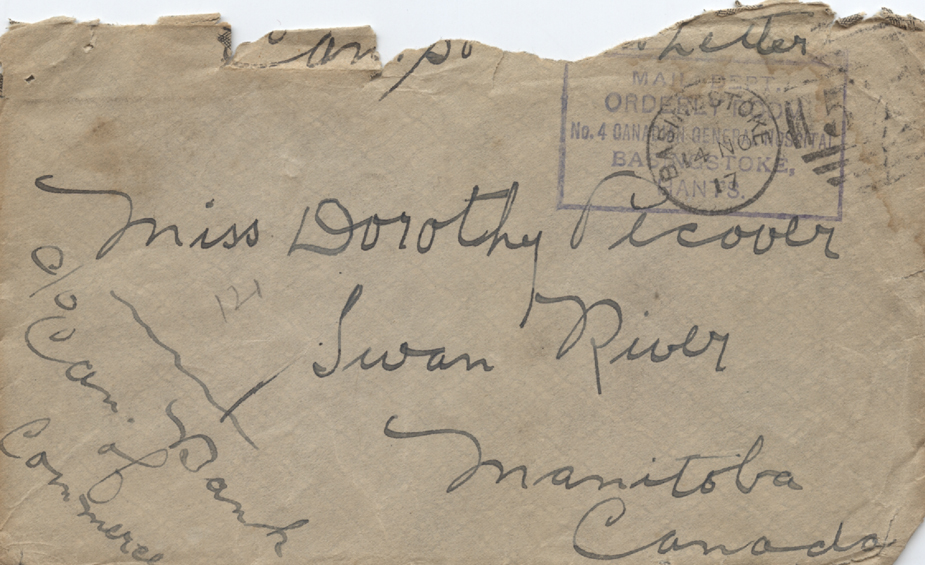 Letter
ORDERLY
No. 4 CANADIAN GENERAL HOSPITAL
BASINGSTOKE,
HANTS.
BASINGSTOKE
14 NO
17
Miss Dorothy Pecover
Swan River
Manitoba
Canada
121
c/o
Can. Bank
of
Commerce